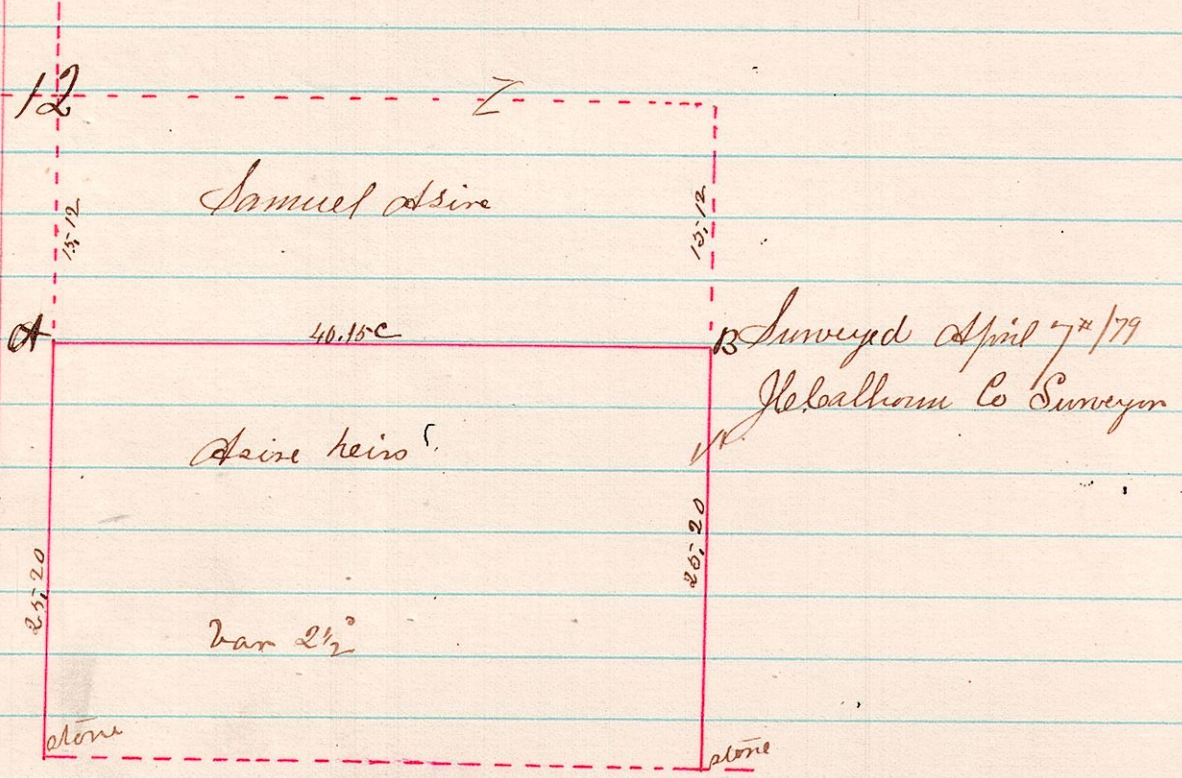 12
Z
Samuel Asire
15,12
15,12
A
40.15c
B
Surveyed April 7th/79
Calhoun Co Surveyor
Asire heirs
25,20
25,20
Var 2½°
stone
stone